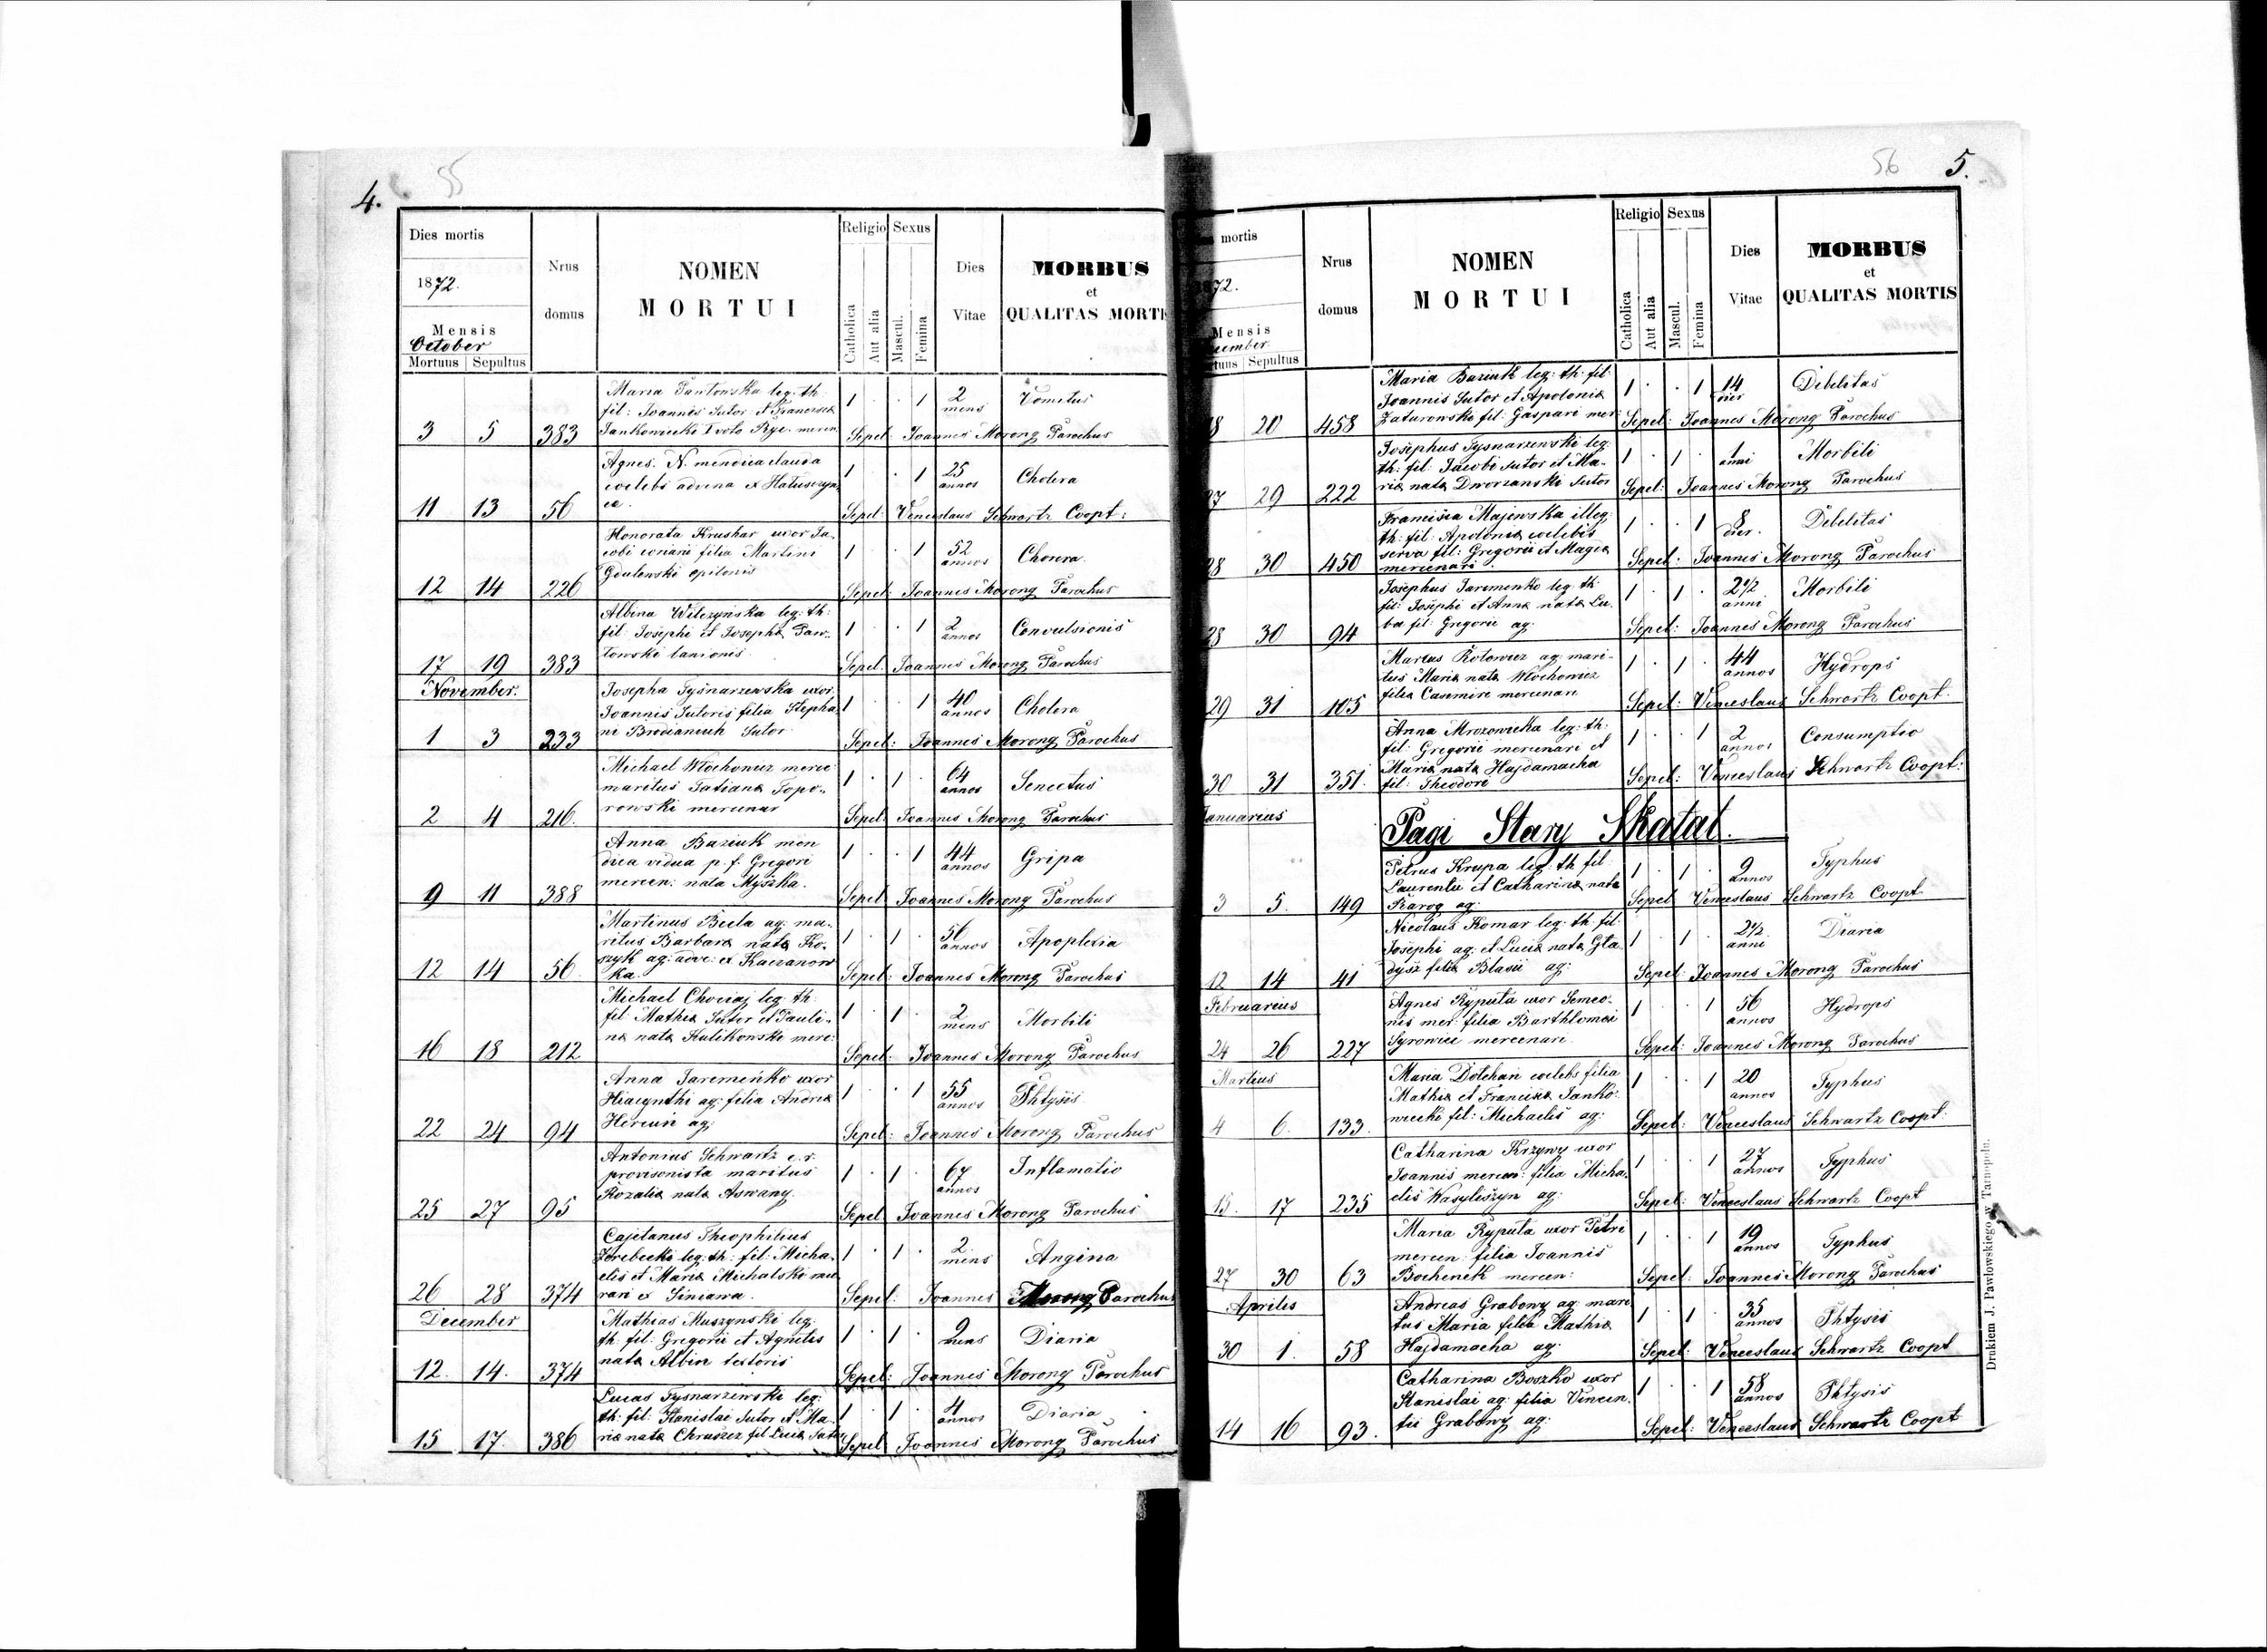 4.
55
Dies mortis
1872.
Mensis
October
Mortuus Sepultus
Nrus
domus
NOMEN
MORTUI
Religio
Catholica
Aut alia
Sexus
Mascul.
Femina
Dies
Vitae
MORBUS
et
QUALITAS MORTI
Maria Pantowska leg: th:
fil: Joannes Sutor et Franciscæ
Jankowiecki I voto Ryc. mercn
3 5 383 1 . . 1 2 mens Vomitus
Sepel: Joannes Morong Parochus
Agnes. N. mendica clauda
coelebs advena ex Hałuszczyn
ce.
11 13 56 1 . 1 25 annos Cholera
Sepel: Venceslaus Schwartz Coopt:
Honorata Krushar uxor Ja-
cobi coriarii filia Martini
Gdulewski opilonis
12 14 226 1 . 1 52 annos Cholera
Sepel: Joannes Morong Parochus
Albina Wilczyńska leg: th:
fil: Josephi et Josephæ Paw-
łowski lanionis
17 19 383 1 . 1 2 annos Convulsionis
Sepel: Joannes Morong Parochus
November.
Josepha Tysnarzewska uxor
Joannis Sutoris filia Stepha
ni Brodaniuk Sutor
1 3 233 1 . 1 40 annos Cholera
Sepel: Joannes Morong Parochus
Michael Włochowicz merce
maritus Tatiana Topo-
rowski mercenar
2 4 216. 1 . 1 . 64 annos Senectus
Sepel: Joannes Morong Parochus
Anna Baziuk men
dica vidua p. f. Gregori
mercen: nata Myszka.
9 11 388 1 . . 1 44 annos Gripa
Sepel: Joannes Morong Parochus
Martinus Biela ag: ma-
ritus Barbaræ natæ Ko-
szyk ag: adve: ex Kaczanow
ka.
12 14 56. 1 . 1 . 56 annos Apoplexia
Sepel: Joannes Morong Parochus
Michael Chociaj leg: th:
fil Mathiæ Sutor et Pauli-
næ natæ Kulikowski merc:
16 18 212 1 . 1 . 2 mens Morbili
Sepel: Joannes Morong Parochus
Anna Jaremeńko uxor
Hiacynthi ag: filia Andreæ
Hercun ag:
22 24 94 1 . . 1 55 annos Phtysis
Sepel: Joannes Morong Parochus
Antonius Schwartz c. r.
provisionista maritus
Rozaliæ natæ Aswany.
25 27 95 1 . 1 . 67 annos Inflamatio
Sepel Joannes Morong Parochus
Cajetanus Theophilius
Zdrebecki leg: th: fil: Micha-
elis et Mariæ Michalski mu
rari ex Siniawa.
26 28 374 1 . 1 . 2 mens Angina
Sepel: Joannes Morong Parochus
December
Mathias Muszynski leg:
th: fil: Gregorii et Agnetis
natæ Albin textoris
12. 14. 374 1 . 1 . 9 mens Diaria
Sepel: Joannes Morong Parochus
Lucas Tysnarzewski leg:
th: fil: Stanislai Sutor et Ma-
riæ natæ Chruszcz fil Lucæ Sutor
15 17. 386 1 . 1 . 4 annos Diaria
Sepel Joannes Morong Parochus
56
5.
mortis
72.
Mensis
cember
tuus Sepultus
Nrus
domus
NOMEN
MORTUI
Religio
Catholica
Aut alia
Sexus
Mascul.
Femina
Dies
Vitae
MORBUS
et
QUALITAS MORTIS
Maria Baziuk leg: th: fil:
Joannis Sutor et Apoloniæ
Zaturowski fil: Gaspari mer:
18 20 458 1 . . 1 14 dier Debelitas
Sepel: Joannes Morong Parochus
Josephus Tysnarzewski leg:
th: fil: Jacobi sutor et Ma-
riæ natæ Dworzanski Sutor
27 29 222 1 . 1 . 1 anni Morbili
Sepel: Joannes Morong Parochus
Francisca Majewska illeg:
th: fil: Apoloniæ coelibis
serva fil: Gregorii et Magdæ
mercenari
28 30 450 1 . . 1 8 dier. Debelitas
Sepel: Joannes Morong Parochus
Josephus Jaremenko leg: th:
fil: Josephi et Annæ natæ Lu-
ba fil: Gregorii ag:
28 30 94 1 . 1 . 2 1/2 anni Morbili
Sepel: Joannes Morong Parochus
Marcus Kotowicz ag: mari-
tus Mariæ natæ Włochowicz
filiæ Casimiri mercenari
29 31 105 1 . 1 . 44 annos Hydrops
Sepel: Venceslaus Schwartz Coopt.
Anna Mrozowicka leg: th:
fil: Gregorii mercenari et
Mariæ natæ Hajdamacha
fil: Theodori
30 31 351. 1 . . 1 2 annos Consumptio
Sepel: Venceslaus Schwartz Coopt:
Januarius
Pagi Stary Skałat.
Petrus Krupa leg: th fil:
Laurentii et Catharinæ natæ
Rarog ag:
3 5. 149 1 . 1 . 9 annos Typhus
Sepel Venceslaus Schwartz Coopt
Nicolaus Komar leg: th: fil:
Josephi ag: et Luciæ natæ Gła
dysz filiæ Blasii ag:
12 14 41 1 . 1 . 2 1/2 anni Diaria
Sepel: Joannes Morong Parochus
Februarius
Agnes Ryputa uxor Semeo-
nis mer: filia Barthlomei
Syrowici mercenari.
24 26 227 1 . 1 56 annos Hydrops
Sepel: Joannes Morong Parochus
Martius
Maria Dołchan coelebs filia
Mathiæ et Franciscæ Janko-
wiecki fil: Michaelis ag:
4 6. 133. 1 . . 1 20 annos Typhus
Sepel: Venceslaus Schwartz Coopt:
Catharina Krzywy uxor
Joannis mercen: filia Micha-
elis Wasyliszyn ag:
15. 17 235 1 . . 1 27 annos Typhus
Sepel: Venceslaus Schwartz Coopt
Maria Ryputa uxor Petri
mercen: filia Joannis
Bochenek mercen:
27 30 63 1 . . 1 19 annos Typhus
Sepel: Joannes Morong Parochus
Aprilis
Andreas Grabowy ag: mari
tus Maria filia Mathiæ
Hajdamacha ag:
30 1. 58 1 . 1 . 35 annos Phtysis
Sepel: Venceslaus Schwartz Coopt
Catharina Boszko uxor
Stanislai ag: filia Vincen.
tii Grabowy ag:
14 16 93. 1 . . 1 58 annos Phtysis
Sepel: Venceslaus Schwartz Coopt
Drukiem J. Pawłowskiego w Tarnopolu.